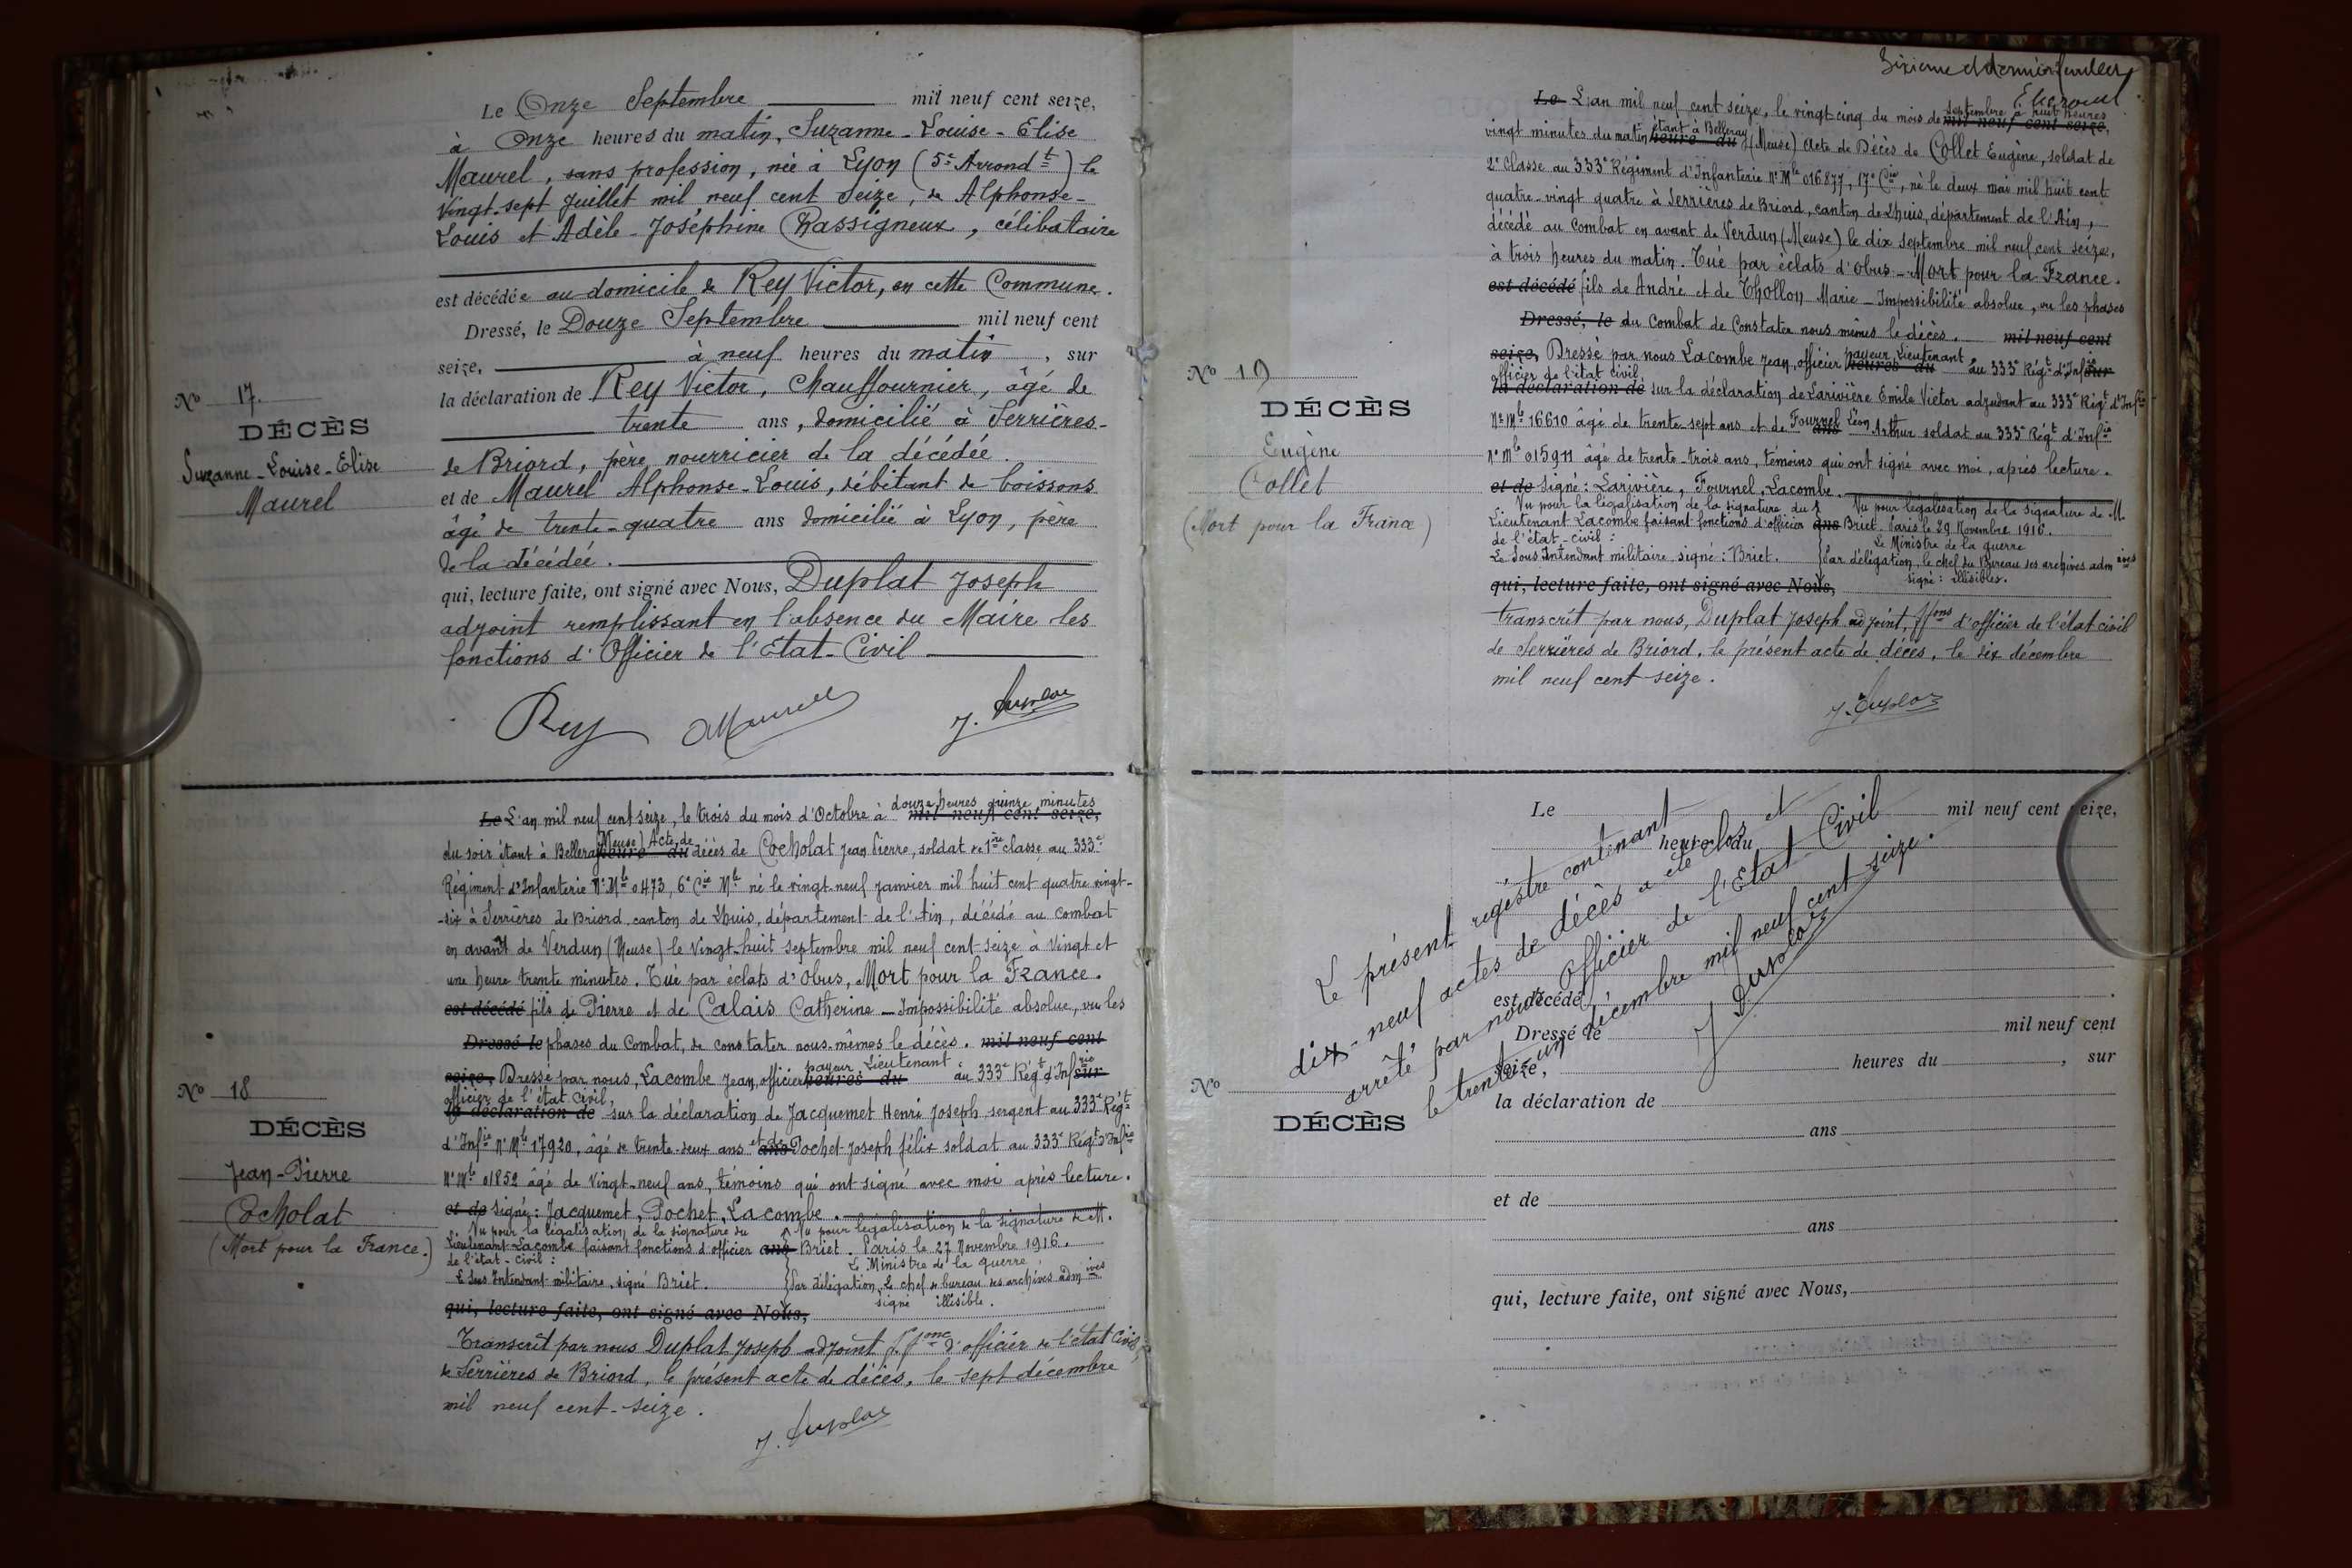 Le Onze Septembre mil neuf cent seize,
à Onze heures du matin, Suzanne-Louise-Elise
Maurel, sans profession, née à Lyon (5e Arrondt) le
Vingt-sept Juillet mil neuf cent Seize, de Alphonse-
Louis et Adèle-Joséphine Chassigneux, célibataire
est décédée au domicile de Rey Victor, en cette Commune.
Dressé, le Douze Septembre mil neuf cent
seize, à neuf heures du matin, sur
la déclaration de Rey Victor, Chauffournier, âgé de
trente ans, domicilié à Serrières-
de Briord, père nourricier de la décédée.
et de Maurel Alphonse-Louis, débitant de boissons
âgé de trente-quatre ans domicilié à Lyon, père
de la décédée.
qui, lecture faite, ont signé avec Nous, Duplat Joseph
adjoint remplissant en l'absence du Maire les
fonctions d'Officier de l'Etat-Civil
Rey Maurel J. Duplat
No 17.
DÉCÈS
Suzanne-Louise-Elise
Maurel
Le L'an mil neuf cent seize, le trois du mois d'Octobre à douze heures quinze minutes mil neuf cent seize,
du soir étant à Belleray (Meuse) Acte de heure du décès de Cocholat Jean Pierre, soldat de 1re classe au 333e
Régiment d'Infanterie No Mle 0473, 6e Cie Mle né le vingt-neuf janvier mil huit cent quatre vingt-
-six à Serrières de Briord, canton de Lhuis, département de l'Ain, décédé au combat
en avant de Verdun (Meuse) le vingt-huit septembre mil neuf cent seize à vingt et
une heure trente minutes. Tué par éclats d'obus, Mort pour la France.
est décédé fils de Pierre et de Calais Catherine — Impossibilité absolue, vu les
Dressé le phases du Combat, de constater nous-mêmes le décès. mil neuf cent
seize, Dressé par nous, Lacombe Jean, officier payeur Lieutenant heures du au 333e Régt d'Infrie sur
officier de l'état civil,
la déclaration de sur la déclaration de Jacquemet Henri Joseph, sergent au 333e Régt
d'Infie No Mle 17920, âgé de trente-deux ans et de ans Pochet Joseph félix soldat au 333e Régt d'Infie
No Mle 01852 âgé de vingt-neuf ans, témoins qui ont signé avec moi après lecture.
et de signé: Jacquemet, Pochet, Lacombe.
Vu pour la légalisation de la signature du
Lieutenant Lacombe faisant fonctions d'officier ans
de l'état-civil:
Le Sous Intendant militaire, signé Briet.
Vu pour légalisation de la signature de M.
Briet. Paris le 27 Novembre 1916.
Le Ministre de la guerre
Par délégation, le chef de bureau des archives admives
signé illisible.
qui, lecture faite, ont signé avec Nous,
Transcrit par nous Duplat Joseph adjoint f.fons d'officier de l'état civil,
de Serrières de Briord, le présent acte de décès, le sept décembre
mil neuf cent-seize.
J. Duplat
No 18
DÉCÈS
Jean-Pierre
Cocholat
(Mort pour la France.)
Sixième et dernier feuillet
Le L'an mil neuf cent seize, le vingt-cinq du mois de septembre à huit heures mil neuf cent seize,
vingt minutes du matin étant à Belleray heure du (Meuse) Acte de Décès de Collet Eugène, soldat de
2e Classe au 333e Régiment d'Infanterie No Mle 016877, 17e Cie, né le deux mai mil huit cent
quatre-vingt quatre à Serrières de Briord, canton de Lhuis, département de l'Ain,
décédé au combat en avant de Verdun (Meuse) le dix septembre mil neuf cent seize,
à trois heures du matin. Tué par éclats d'obus — Mort pour la France.
est décédé fils de André et de Thollon Marie — Impossibilité absolue, vu les phases
Dressé, le du combat de constater nous mêmes le décès. mil neuf cent
seize, Dressé par nous Lacombe Jean, officier payeur Lieutenant heures du au 333e Régt d'Infie sur
officier de l'état civil
la déclaration de sur la déclaration de Larivière Emile Victor adjudant au 333e Régt d'Infrie
No Mle 16610 âgé de trente-sept ans et de Fournel Léon ans Arthur soldat au 333e Régt d'Infie
No Mle 015911 âgé de trente-trois ans, témoins qui ont signé avec moi, après lecture.
et de signé: Larivière, Fournel, Lacombe.
Vu pour la légalisation de la signature du
Lieutenant Lacombe faisant fonctions d'officier ans
de l'état-civil:
Le Sous Intendant militaire signé: Briet.
Vu pour légalisation de la signature de M.
Briet. Paris le 29 Novembre 1916.
Le Ministre de la guerre
Par délégation, le chef du Bureau des archives admives
signé: illisibles.
qui, lecture faite, ont signé avec Nous,
transcrit par nous, Duplat Joseph adjoint, f.fons d'officier de l'état civil
de Serrières de Briord, le présent acte de décès, le six décembre
mil neuf cent-seize.
J. Duplat
No 19
DÉCÈS
Eugène
Collet
(Mort pour la France)
Le mil neuf cent seize,
heure du
est décédé
Dressé le mil neuf cent
seize, heures du , sur
la déclaration de
ans
et de
ans
qui, lecture faite, ont signé avec Nous,
No
DÉCÈS
Le présent registre contenant
dix-neuf actes de décès a été clos et
arrêté par nous Officier de l'Etat Civil
le trente-un décembre mil neuf cent seize.
J Duplat